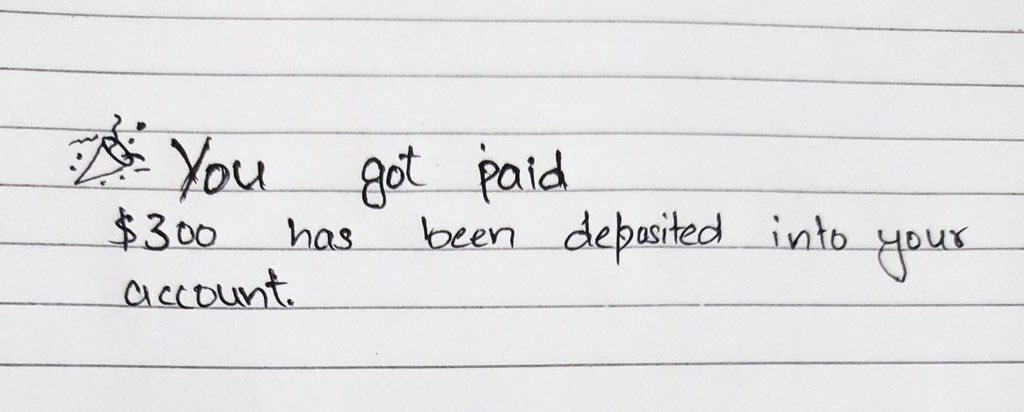 🎉 You got paid
$300 has been deposited into your
account.